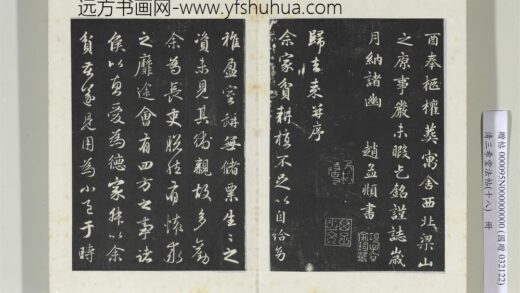 远方书画网-www.yfshuhua.com
酉奉柩權葬寓舍西北梁山
之原事嚴未暇乞銘謹誌歲
月納諸幽
趙孟頫書
歸去來并序
余家貧耕植不足以自給幼
稚盈室缾無儲粟生生之
資未見其術親故多勸
余為長吏脫然有懷求
之靡途會有四方之事諸
侯以惠愛為德家叔以余
貧苦遂見用為小邑于時
贈帖 000095N000000000 (國贈 032122)
清三希堂法帖(十八) 冊